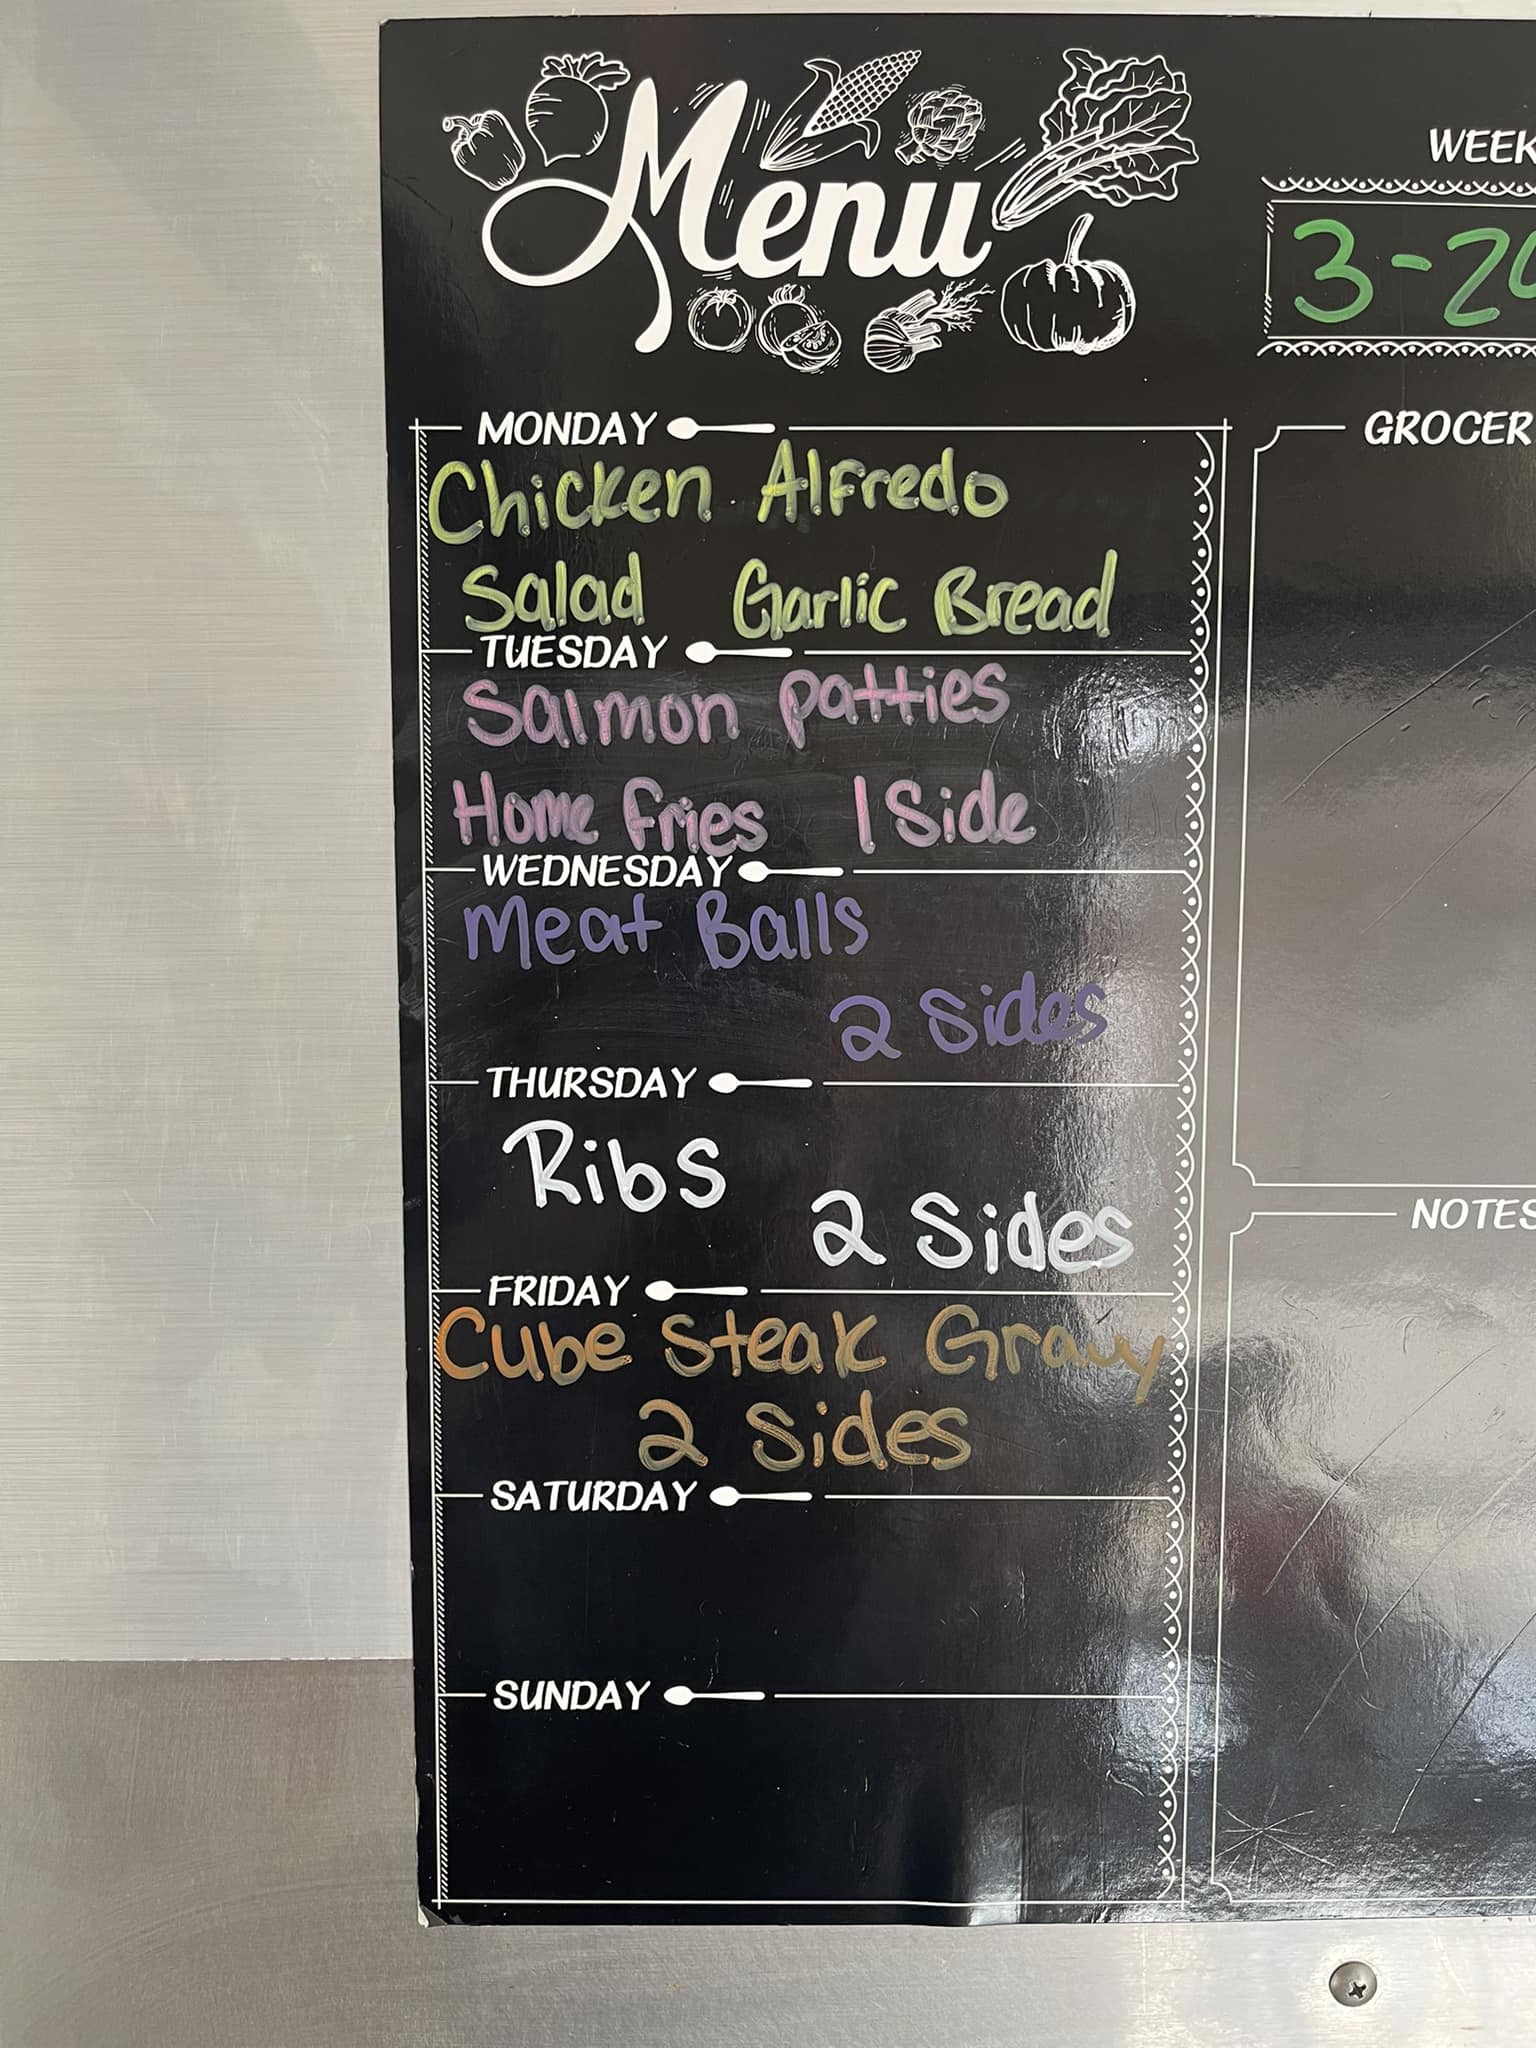 Menu
WEEK
3-20
MONDAY
Chicken Alfredo
Salad Garlic Bread
TUESDAY
Salmon patties
Home fries 1 Side
WEDNESDAY
Meat Balls
2 Sides
THURSDAY
Ribs
2 Sides
FRIDAY
Cube Steak Gravy
2 Sides
SATURDAY
SUNDAY
GROCER
NOTES